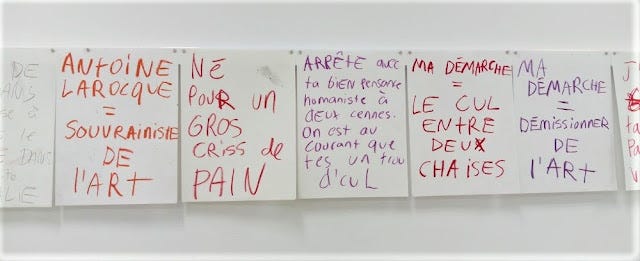 DE
DANS
à
le
DANS
ALIE
ANTOINE
LAROCQUE
=
SOUVRAINISTE
DE
l'ART
NÉ
POUR UN
GROS
CRISS de
PAIN
ARRÊTE avec
ta BIEN PENSANCE
humaniste à
deux cennes.
On est au
courant que
t'es un trou
d'cul
MA DÉMARCHE
=
LE CUL
ENTRE
DEUX
CHAISES
MA
DÉMARCHE
=
DÉMISSIONNER
DE
l'ART
J'